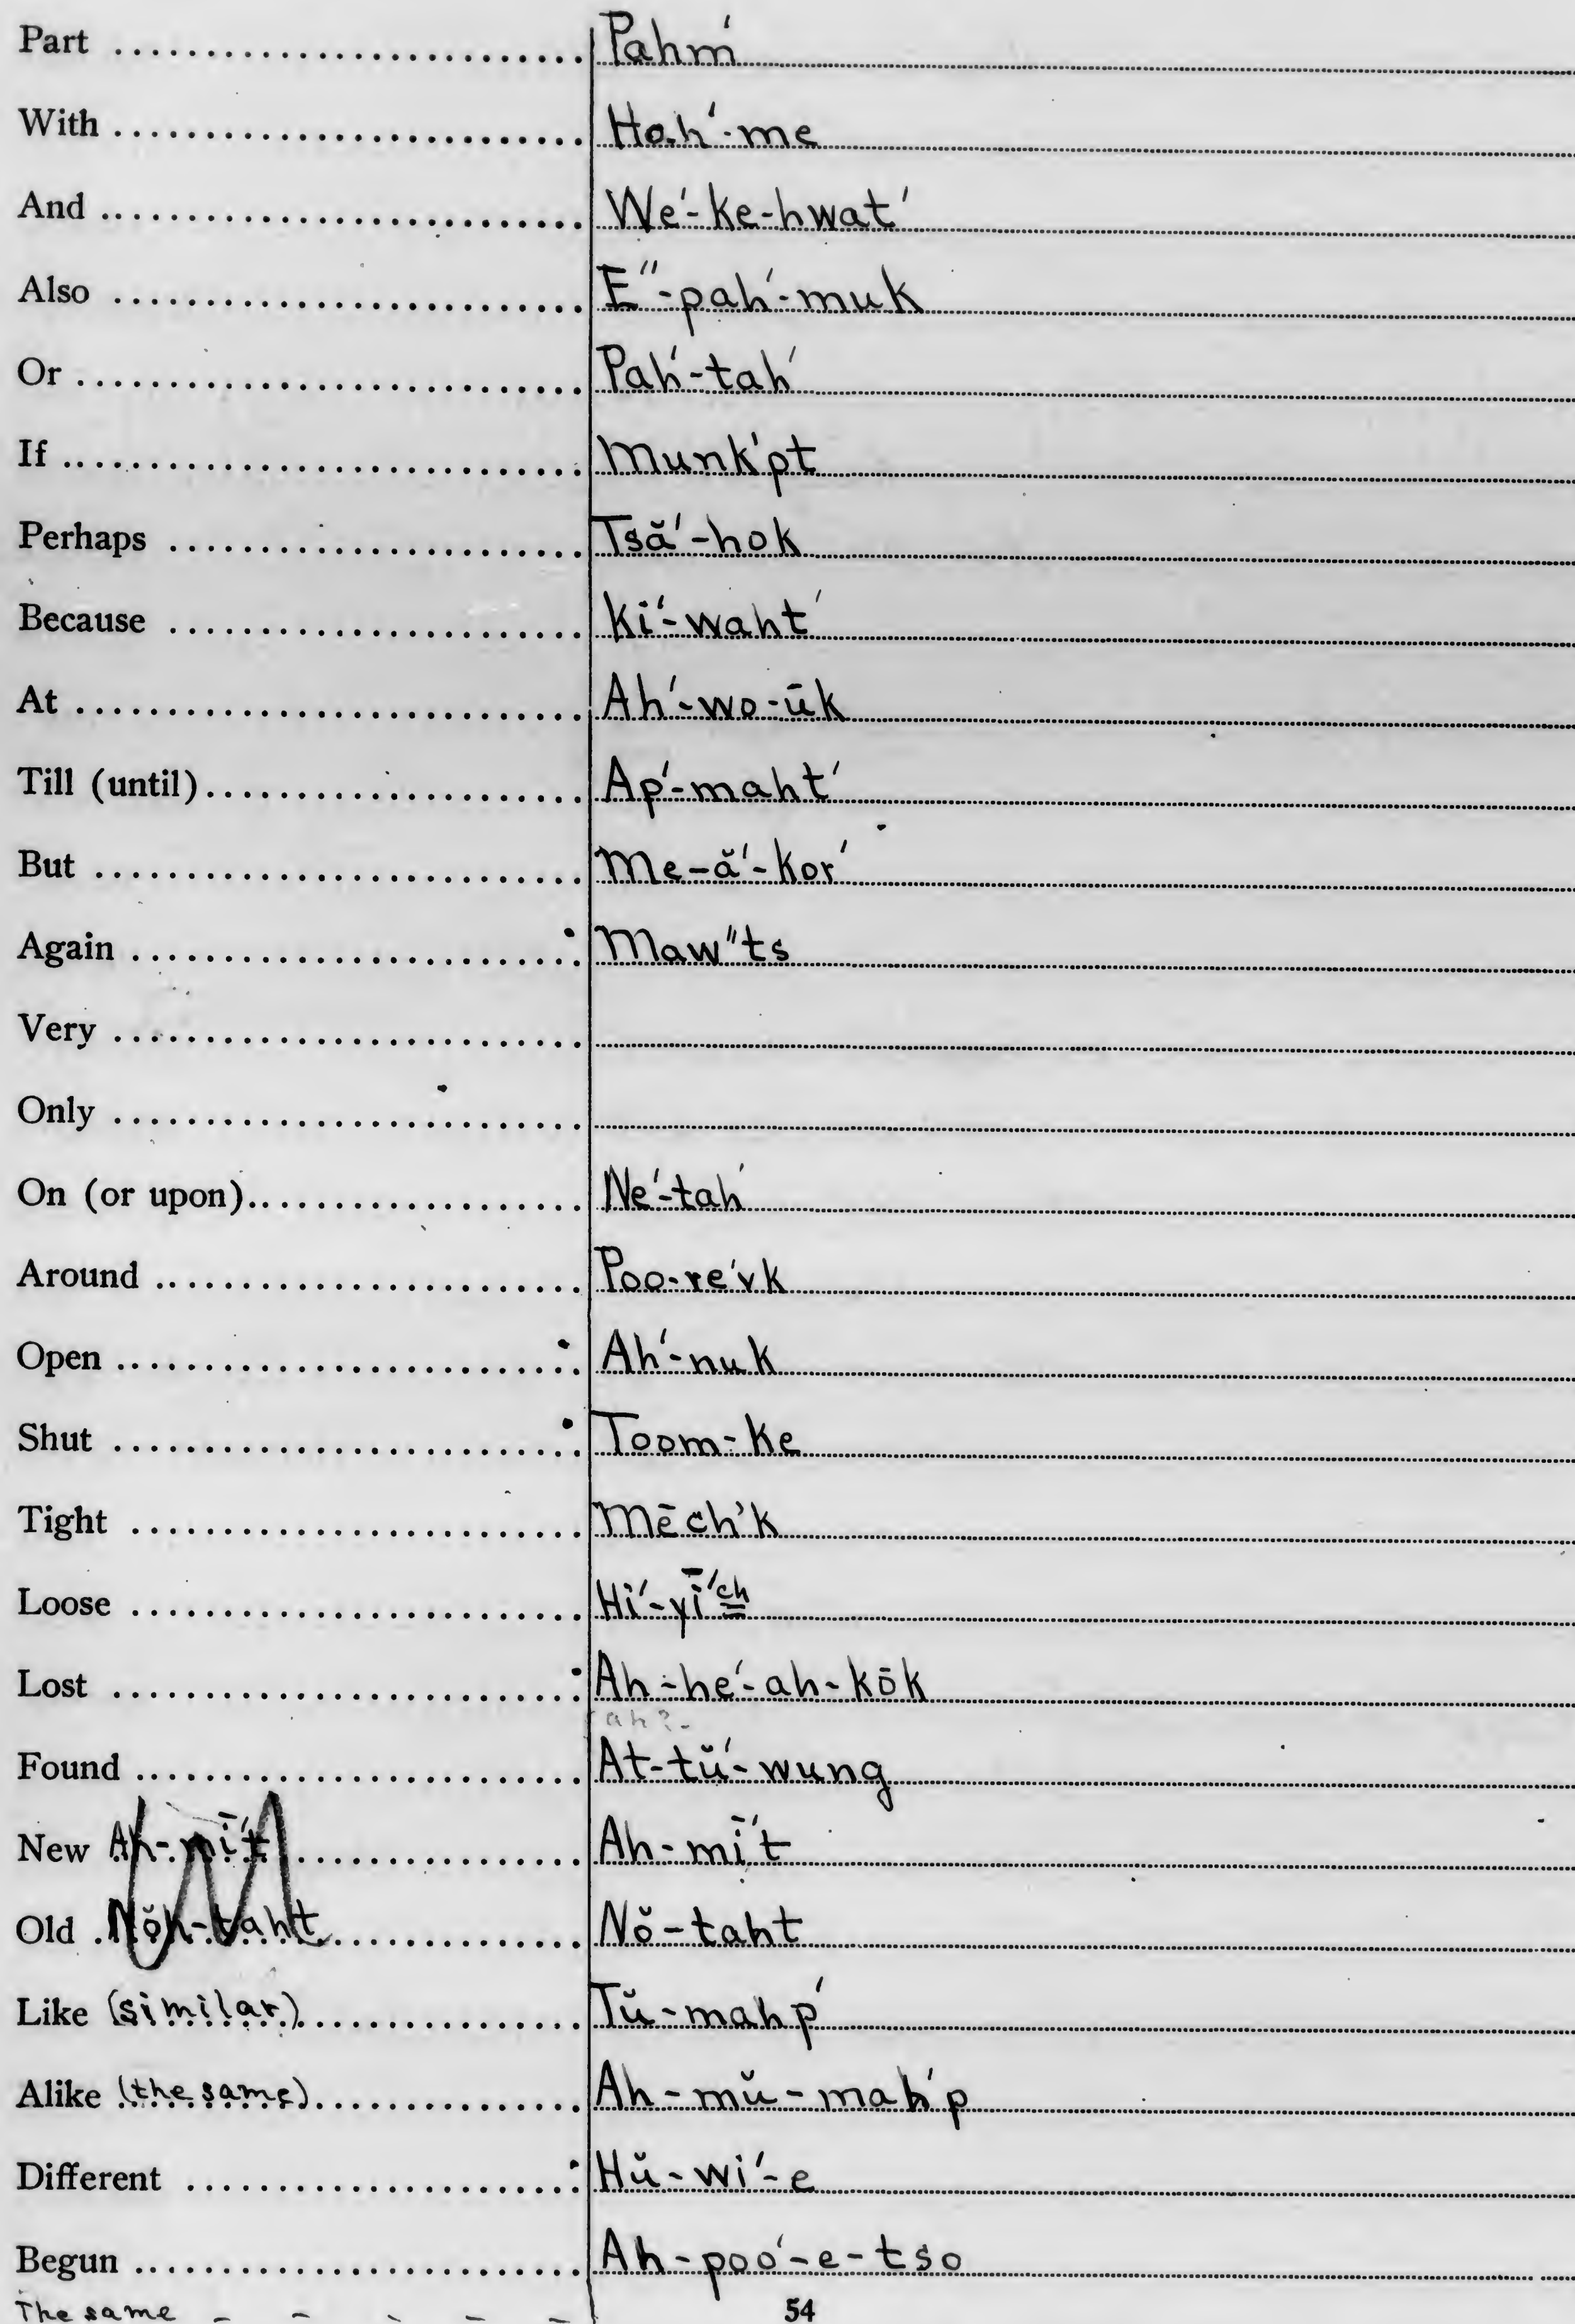 Part ........................ Pahm'
With ........................ Hah'-me
And ........................ We'-ke-hwat'
Also ........................ E"-pah'-muk
Or ........................ Pah'-tah'
If ........................ Munk'pt
Perhaps ........................ Tsă'-hok
Because ........................ Ki'-waht'
At ........................ Ah'-wo-ūk
Till (until)........................ Ap'-maht'
But ........................ Me-ă'-kor'
Again ........................ Maw"ts
Very ........................
Only ........................
On (or upon)........................ Ne'-tah'
Around ........................ Poo-re'vk
Open ........................ Ah'-nuk
Shut ........................ Toom-ke
Tight ........................ Mēch'k
Loose ........................ Hi'-yī'ch
Lost ........................ Ah-he'-ah-kōk
ah?-
Found ........................ At-tŭ'-wung
New Ah-mī't ........................ Ah-mī't
Old Nŏh-taht ........................ Nŏ-taht
Like (similar)........................ Tŭ-mahp'
Alike (the same)........................ Ah-mŭ-mah'p
Different ........................ Hŭ-wi'-e
Begun ........................ Ah-poo'-e-tso
The same - - - - -
54